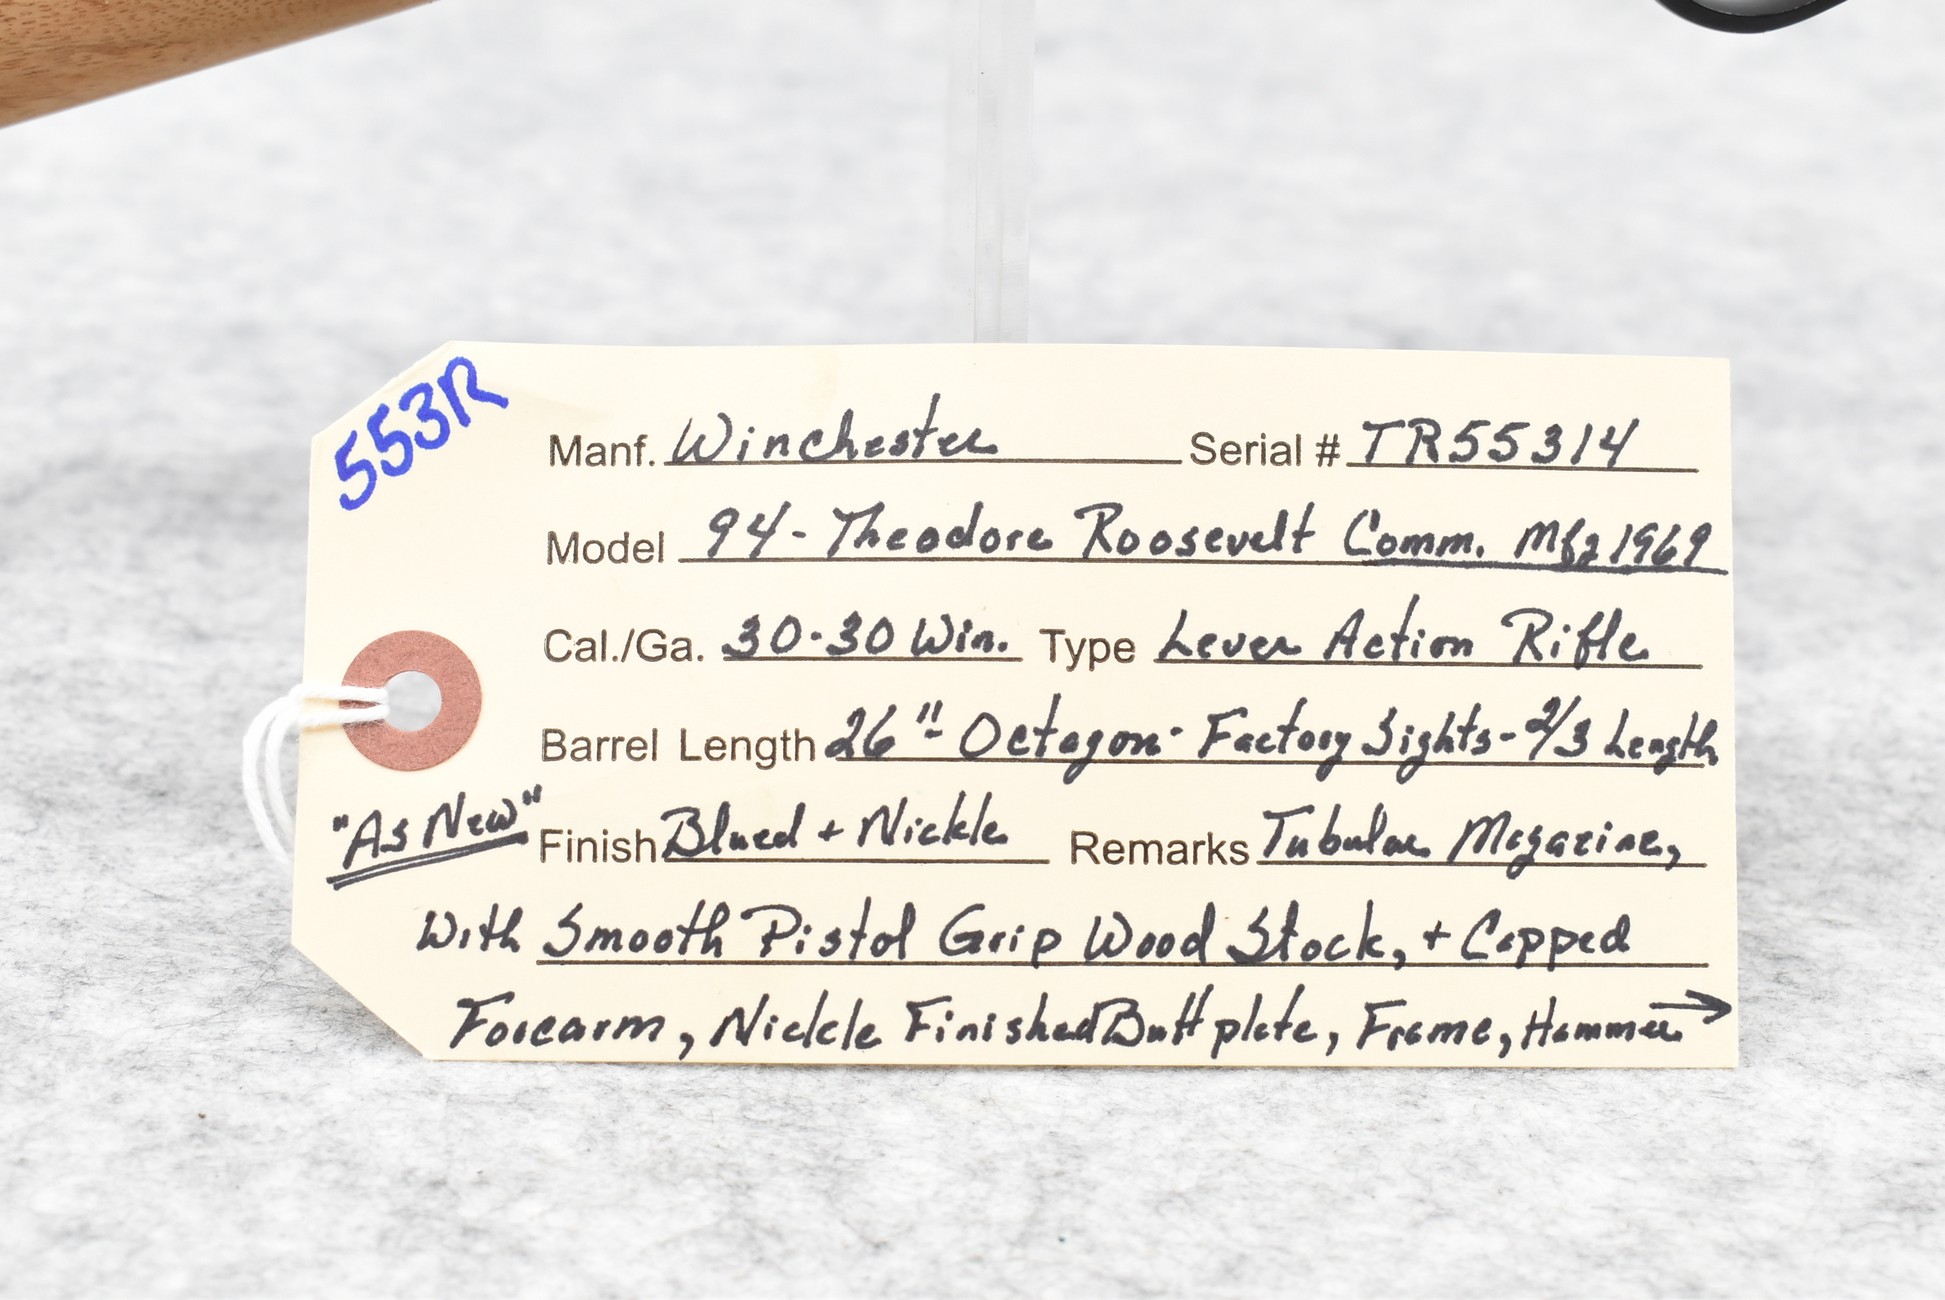 553R
Manf. Winchester Serial # TR55314
Model 94 - Theodore Roosevelt Comm. Mfg 1969
Cal./Ga. 30-30 Win. Type Lever Action Rifle
Barrel Length 26" Octagon - Factory Sights - 2/3 Length
"As New" Finish Blued + Nickle Remarks Tubular Magazine,
With Smooth Pistol Grip Wood Stock, + Capped
Forearm, Nickle Finished Buttplate, Frame, Hammer →